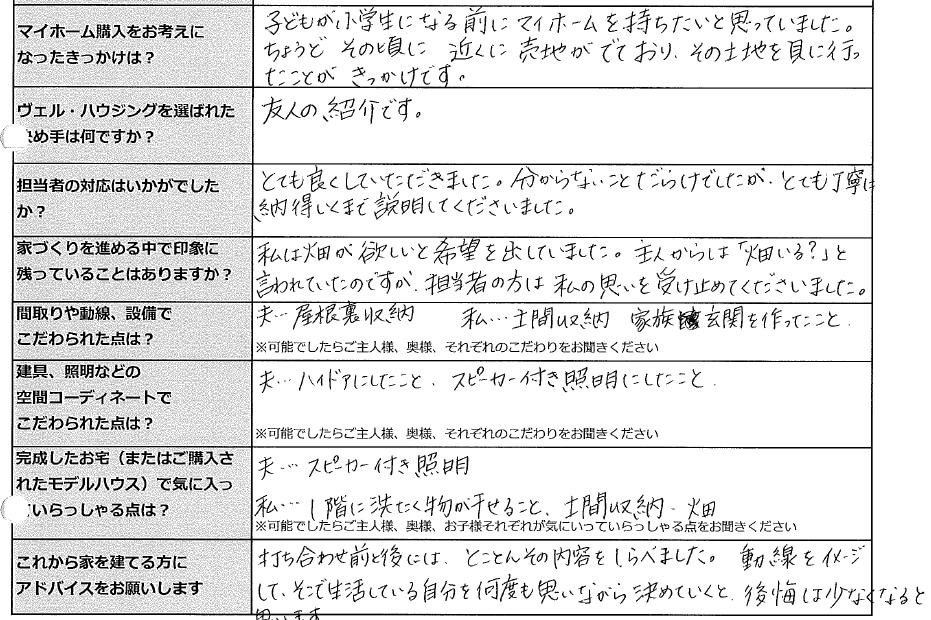 マイホーム購入をお考えに
なったきっかけは？
子どもが小学生になる前にマイホームを持ちたいと思っていました。
ちょうどその頃に 近くに売地がでており、その土地を見に行っ
たことがきっかけです。
ヴェル・ハウジングを選ばれた
め手は何ですか？
友人の紹介です。
担当者の対応はいかがでした
か？
とても良くしていただきました。分からないことだらけでしたが、とても丁寧に
納得いくまで説明してくださいました。
家づくりを進める中で印象に
残っていることはありますか？
私は畑が欲しいと希望を出していました。主人からは「畑いる？」と
言われていたのですが、担当者の方は私の思いを受け止めてくださいました。
間取りや動線、設備で
こだわられた点は？
夫…屋根裏収納 私…土間収納 家族玄関を作ったこと.
※可能でしたらご主人様、奥様、それぞれのこだわりをお聞きください
建具、照明などの
空間コーディネートで
こだわられた点は？
夫…ハイドアにしたこと、スピーカー付き照明にしたこと.
※可能でしたらご主人様、奥様、それぞれのこだわりをお聞きください
完成したお宅（またはご購入さ
れたモデルハウス）で気に入っ
いらっしゃる点は？
夫…スピーカー付き照明
私…1階に洗たく物が干せること、土間収納・畑
※可能でしたらご主人様、奥様、お子様それぞれが気にいっていらっしゃる点をお聞きください
これから家を建てる方に
アドバイスをお願いします
打ち合わせ前と後には、とことんその内容をしらべました。 動線をイメージ
して、そこで生活している自分を何度も思いながら決めていくと、後悔は少なくなると
思います